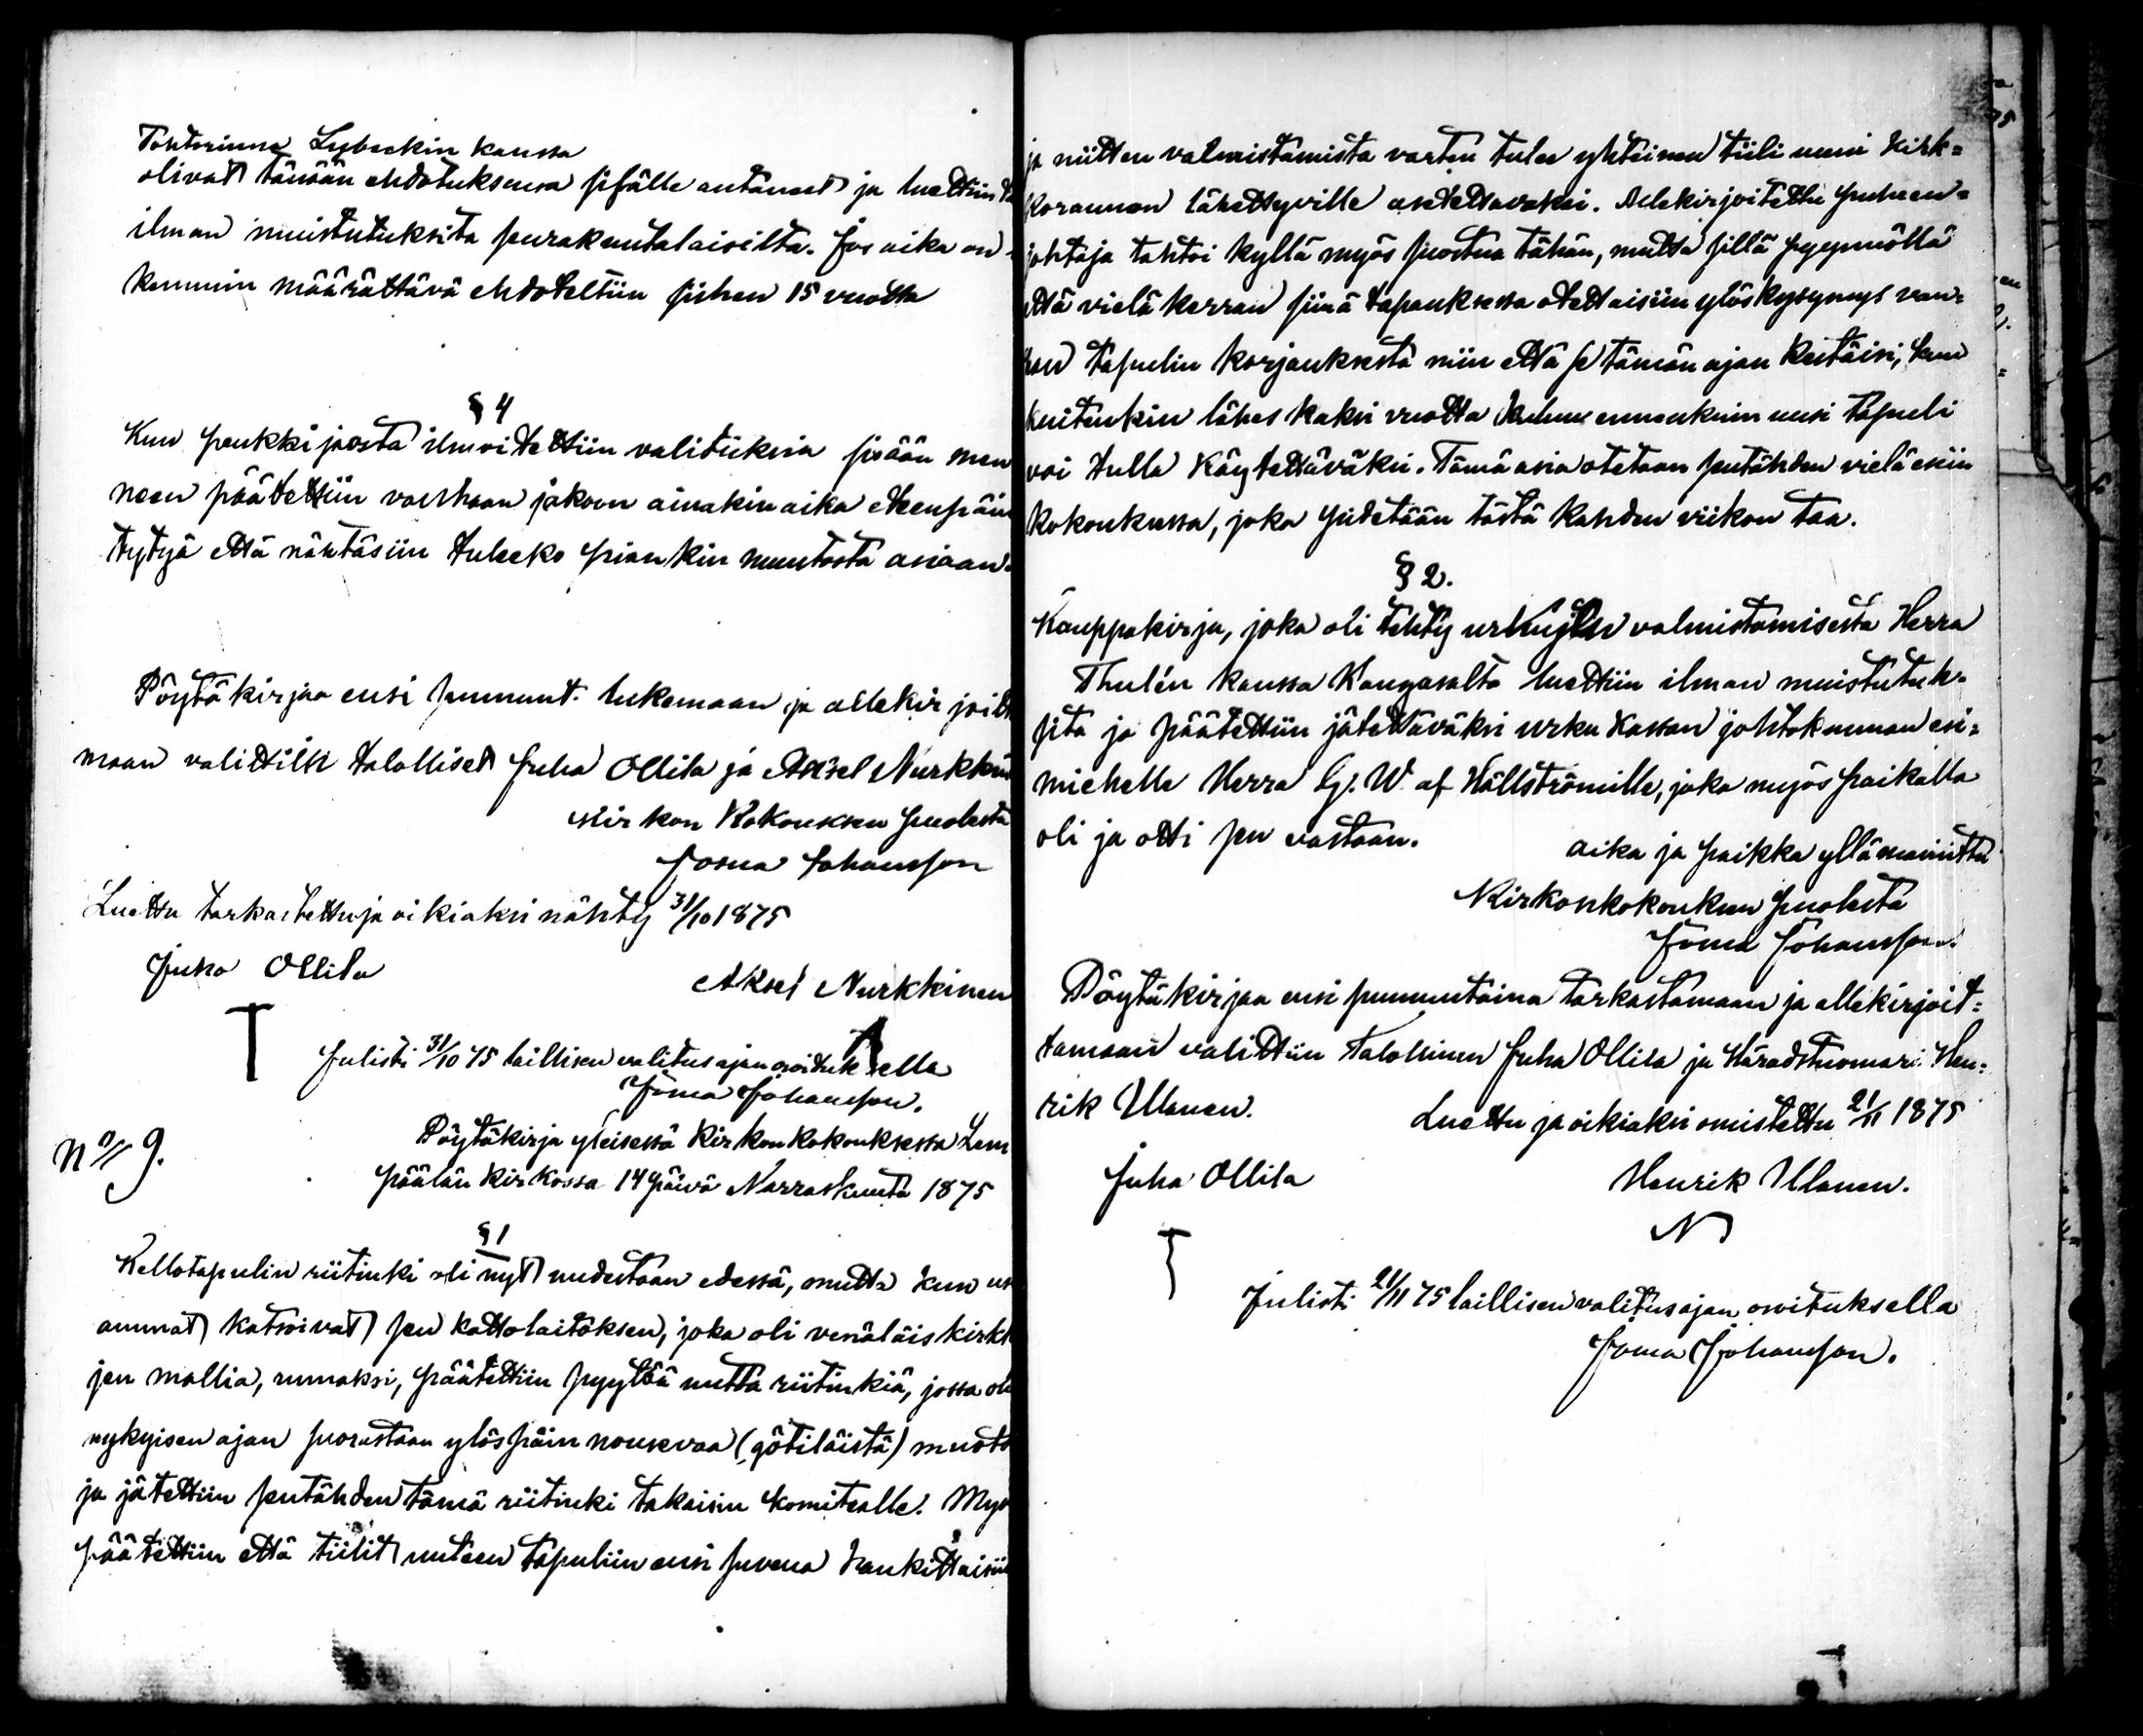 Tohtorinna Lybeckin kanssa
olivat tämän ehdotuksensa sisälle antaneet ja luettiin
ilman muistutuksita seurakuntalaisilta. Jos aika on
kemmin määrättävä ehdoteltiin siihen 15 vuotta
§ 4
Kun penkki jaosta ilmoitettiin valituksia sisään men
neen päätettiin vanhaan jakoon ainakin aika eteenpäin
tytyä että nähtäsiin tuleeko piankin muutosta asiaan.
Pöytäkirjaa ensi sunnunt. lukemaan ja allekirjoit
maan valittiin talolliset Juha Ollila ja Aksel Nurkkin
Kirkon Kokouksen puolesta
Josua Johansson
Luettu tarkastettu ja oikiaksi nähty 31/10 1875
Juho Ollila
Aksel Nurkkinen
Julisti 31/10 75 laillisen valitusajan osoituksella
Josua Johansson.
No 9.
Pöytäkirja yleisessä Kirkon Kokouksessa Lem
päälän Kirkossa 14 päivä Marraskuuta 1875
§ 1
Kellotapulin riitinki oli nyt uudestaan edessä, mutta kun us
ammat katsoivat sen kattolaitoksen, joka oli venäläis kirkk
jen mallia, rumaksi, päätettiin pyytää uutta riitinkiä, jossa oli
nykyisen ajan suorastaan ylöspäin nousevaa (götiläistä) muoto
ja jätettiin sentähden tämä riitinki takaisin komitealle. Myös
päätettiin että tiilit uuteen tapuliin ensi suvena hankittaisiin
ja niitten valmistamista varten tulee yhteinen tiili uuni Kirk=
korannan lähettyville asetettavaksi. Allekirjoitettu puheen=
johtaja tahtoi kyllä myös suostua tähän, mutta sillä pyynnöllä
että vielä kerran siinä tapauksessa otettaisiin ylös kysymys van=
han tapulin korjauksesta niin että se tämän ajan kestäisi, kun
kuitenkin lähes kaksi vuotta kuluu ennenkuin uusi tapuli
voi tulla käytettäväksi. Tämä asia otetaan sentähden vielä esiin
kokouksessa, joka pidetään tästä kahden viikon taa.
§ 2.
Kauppakirja, joka oli tehty urkuin valmistamisesta Herra
Thulén kanssa Kangasalta luettiin ilman muistutuk-
sita ja päätettiin jätettäväksi urku kassan johtokunnan esi=
miehelle Herra G. W. af Hällströmille, joka myös paikalla
oli ja otti sen vastaan.
aika ja paikka yllämainittu
Kirkonkokouksen puolesta
Josua Johansson.
Pöytäkirjaa ensi sunnuntaina tarkastamaan ja allekirjoit=
tamaan valittiin Talollinen Juha Ollila ja Häradstuomari Hen=
rik Ullanen.
Luettu ja oikiaksi omistettu 21/11 1875
Juha Ollila
Henrik Ullanen.
Julisti 21/11 75 laillisen valitusajan osoituksella
Josua Johansson.